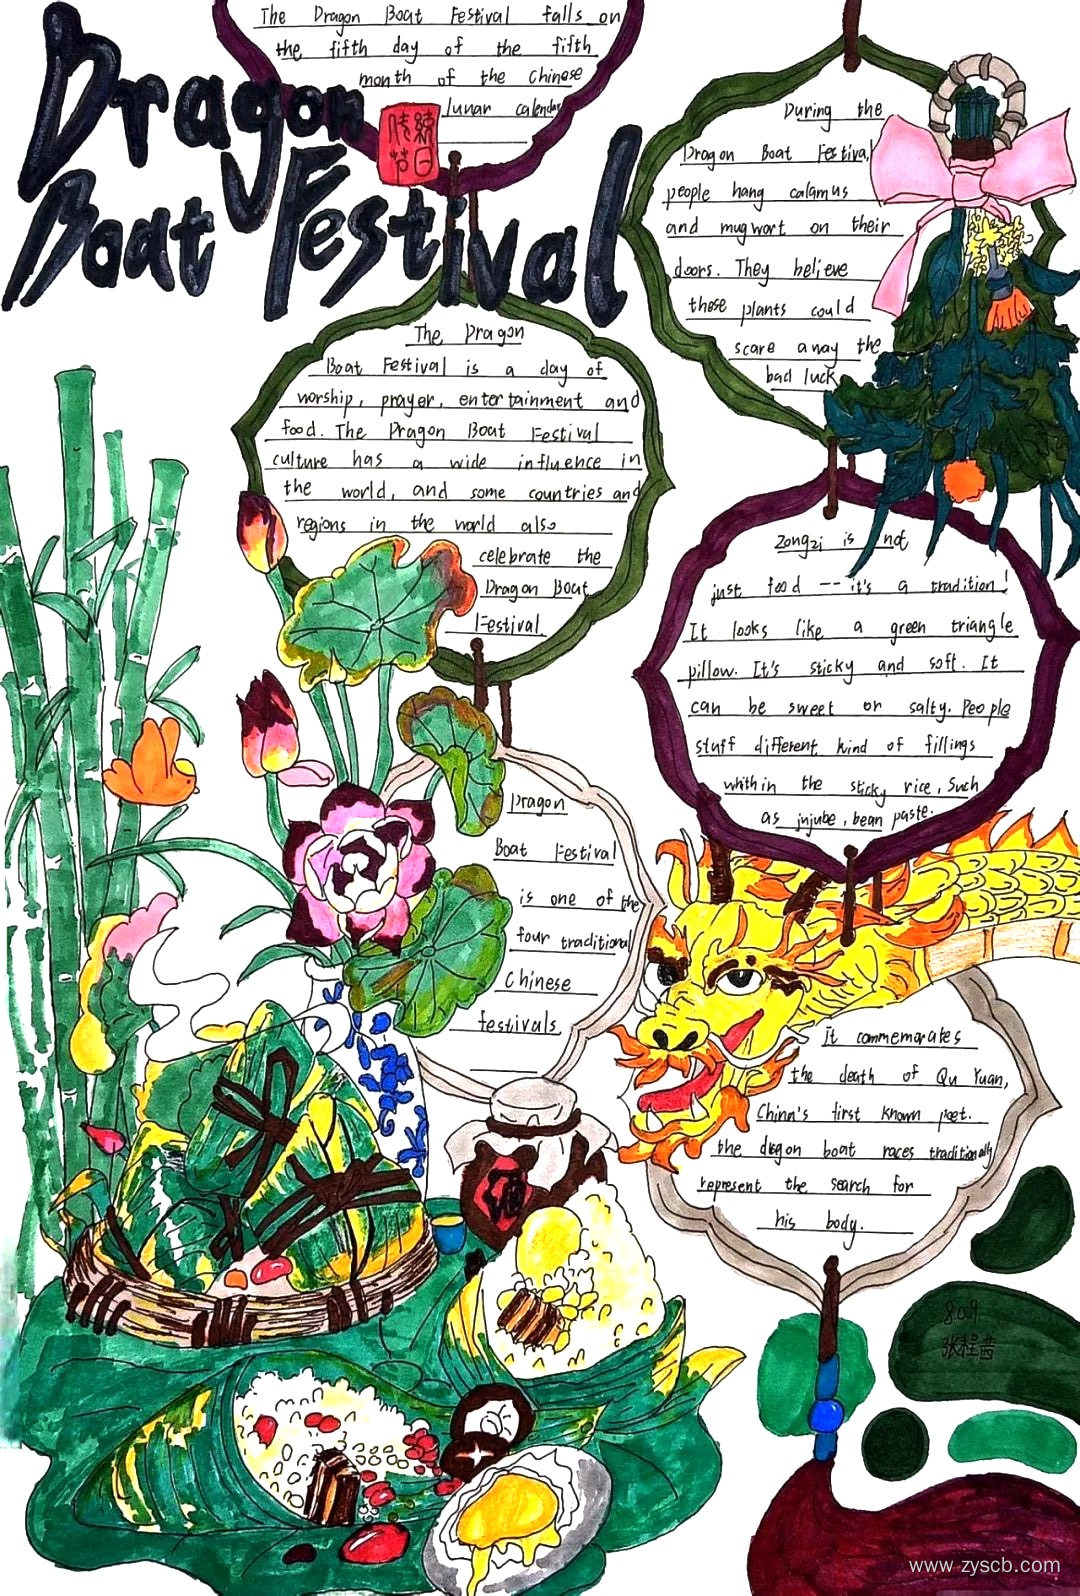 The Dragon Boat Festival falls on
the fifth day of the fifth
month of the Chinese
lunar calendar
Dragon
Boat Festival
During the
Dragon Boat Festival,
people hang calamus
and mugwort on their
doors. They believe
those plants could
scare away the
bad luck.
The Dragon
Boat Festival is a day of
worship, prayer, entertainment and
food. The Dragon Boat Festival
culture has a wide influence in
the world, and some countries and
regions in the world also
celebrate the
Dragon Boat
Festival.
Zongzi is not
just food -- it's a tradition!
It looks like a green triangle
pillow. It's sticky and soft. It
can be sweet or salty. People
stuff different kind of fillings
whithin the sticky rice, Such
as jujube, bean paste.
Dragon
Boat Festival
is one of the
four traditional
Chinese
festivals.
It commemorates
the death of Qu Yuan,
China's first known poet.
the dragon boat races traditionally
represent the search for
his body.
酒
809
www.zyscb.com